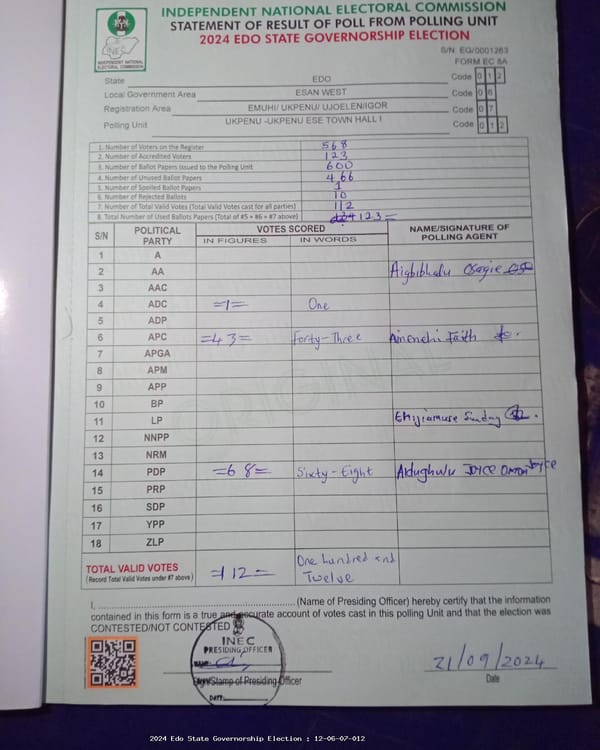 INDEPENDENT NATIONAL ELECTORAL COMMISSION
STATEMENT OF RESULT OF POLL FROM POLLING UNIT
2024 EDO STATE GOVERNORSHIP ELECTION
S/N: EG/0001263
FORM EC 8A
INEC
INDEPENDENT NATIONAL ELECTORAL COMMISSION
State EDO Code 0 1 2
Local Government Area ESAN WEST Code 0 6
Registration Area EMUHI/ UKPENU/ UJOELEN/IGOR Code 0 7
Polling Unit UKPENU -UKPENU ESE TOWN HALL I Code 0 1 2
1. Number of Voters on the Register 568
2. Number of Accredited Voters 123
3. Number of Ballot Papers Issued to the Polling Unit 600
4. Number of Unused Ballot Papers 466
5. Number of Spoiled Ballot Papers 1
6. Number of Rejected Ballots 10
7. Number of Total Valid Votes (Total Valid Votes cast for all parties) 112
8. Total Number of Used Ballots Papers (Total of #5 + #6 + #7 above) 123=
S/N POLITICAL PARTY VOTES SCORED NAME/SIGNATURE OF POLLING AGENT
IN FIGURES IN WORDS
1 A
2 AA Osagie
3 AAC
4 ADC =1= One
5 ADP
6 APC =43= Forty-Three Faith
7 APGA
8 APM
9 APP
10 BP
11 LP Sunday
12 NNPP
13 NRM
14 PDP =68= Sixty-Eight JOYCE
15 PRP
16 SDP
17 YPP
18 ZLP
TOTAL VALID VOTES =112= One hundred and
(Record Total Valid Votes under #7 above) Twelve
I, (Name of Presiding Officer) hereby certify that the information
contained in this form is a true and accurate account of votes cast in this polling Unit and that the election was
CONTESTED/NOT CONTESTED
INEC
PRESIDING OFFICER
21/09/2024
Sign/Stamp of Presiding Officer
Date
DATE:
2024 Edo State Governorship Election : 12-06-07-012